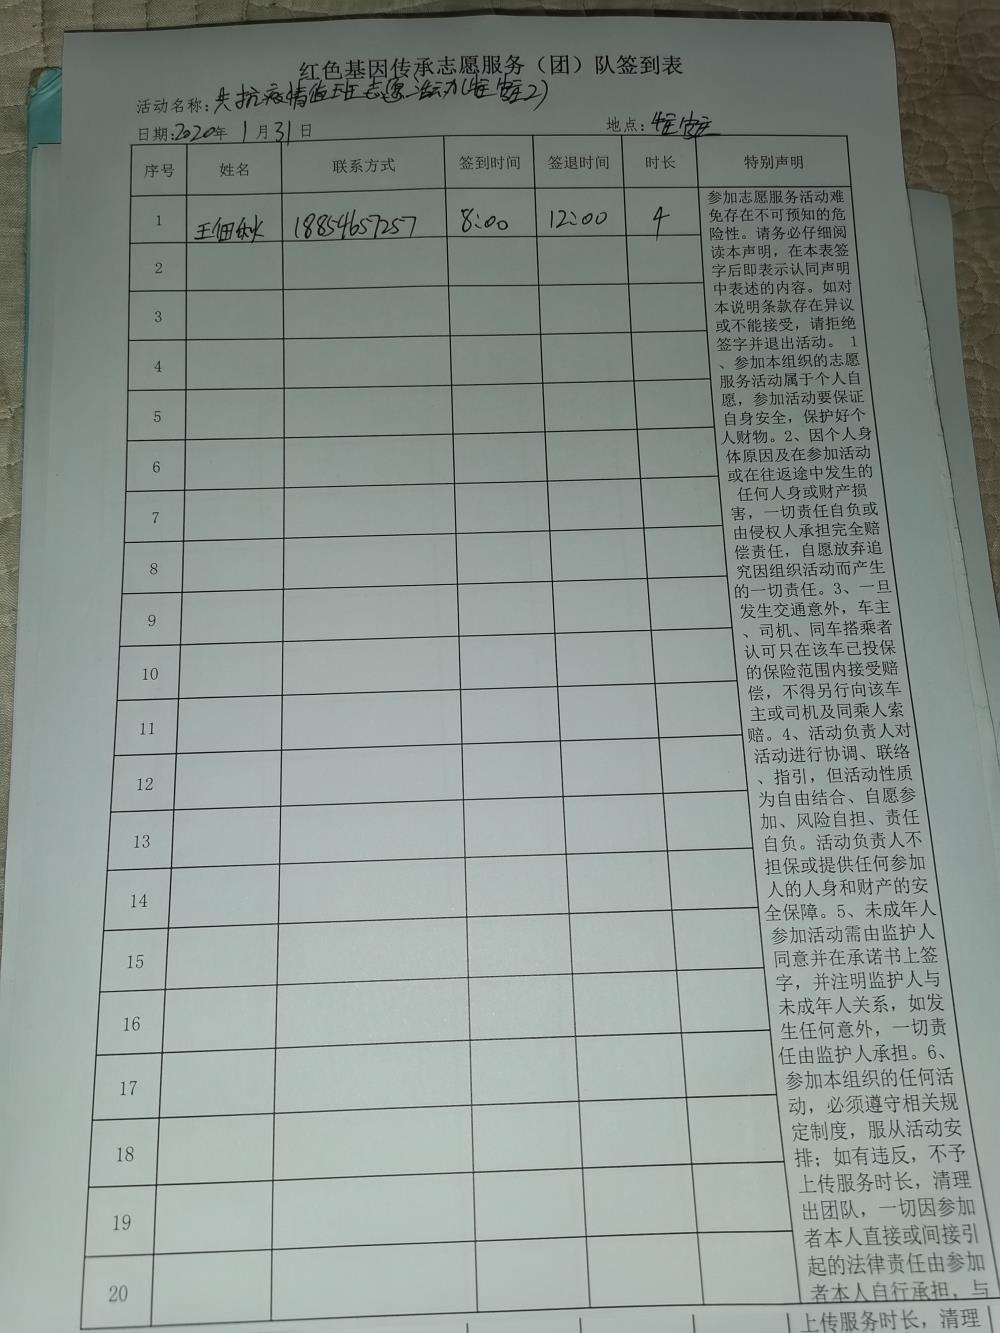 红色基因传承志愿服务（团）队签到表
活动名称：共抗疫情值班志愿活动
日期：2020年 1月31日 地点：
序号 姓名 联系方式 签到时间 签退时间 时长 特别声明
1 王佃秋 18854657257 8:00 12:00 4
2
3
4
5
6
7
8
9
10
11
12
13
14
15
16
17
18
19
20
参加志愿服务活动难
免存在不可预知的危
险性。请务必仔细阅
读本声明，在本表签
字后即表示认同声明
中表述的内容。如对
本说明条款存在异议
或不能接受，请拒绝
签字并退出活动。 1
、参加本组织的志愿
服务活动属于个人自
愿，参加活动要保证
自身安全，保护好个
人财物。2、因个人身
体原因及在参加活动
或在往返途中发生的
任何人身或财产损
害，一切责任自负或
由侵权人承担完全赔
偿责任，自愿放弃追
究因组织活动而产生
的一切责任。3、一旦
发生交通意外，车主
、司机、同车搭乘者
认可只在该车已投保
的保险范围内接受赔
偿，不得另行向该车
主或司机及同乘人索
赔。4、活动负责人对
活动进行协调、联络
、指引，但活动性质
为自由结合、自愿参
加、风险自担、责任
自负。活动负责人不
担保或提供任何参加
人的人身和财产的安
全保障。5、未成年人
参加活动需由监护人
同意并在承诺书上签
字，并注明监护人与
未成年人关系，如发
生任何意外，一切责
任由监护人承担。6、
参加本组织的任何活
动，必须遵守相关规
定制度，服从活动安
排；如有违反，不予
上传服务时长，清理
出团队，一切因参加
者本人直接或间接引
起的法律责任由参加
者本人自行承担，与
上传服务时长，清理